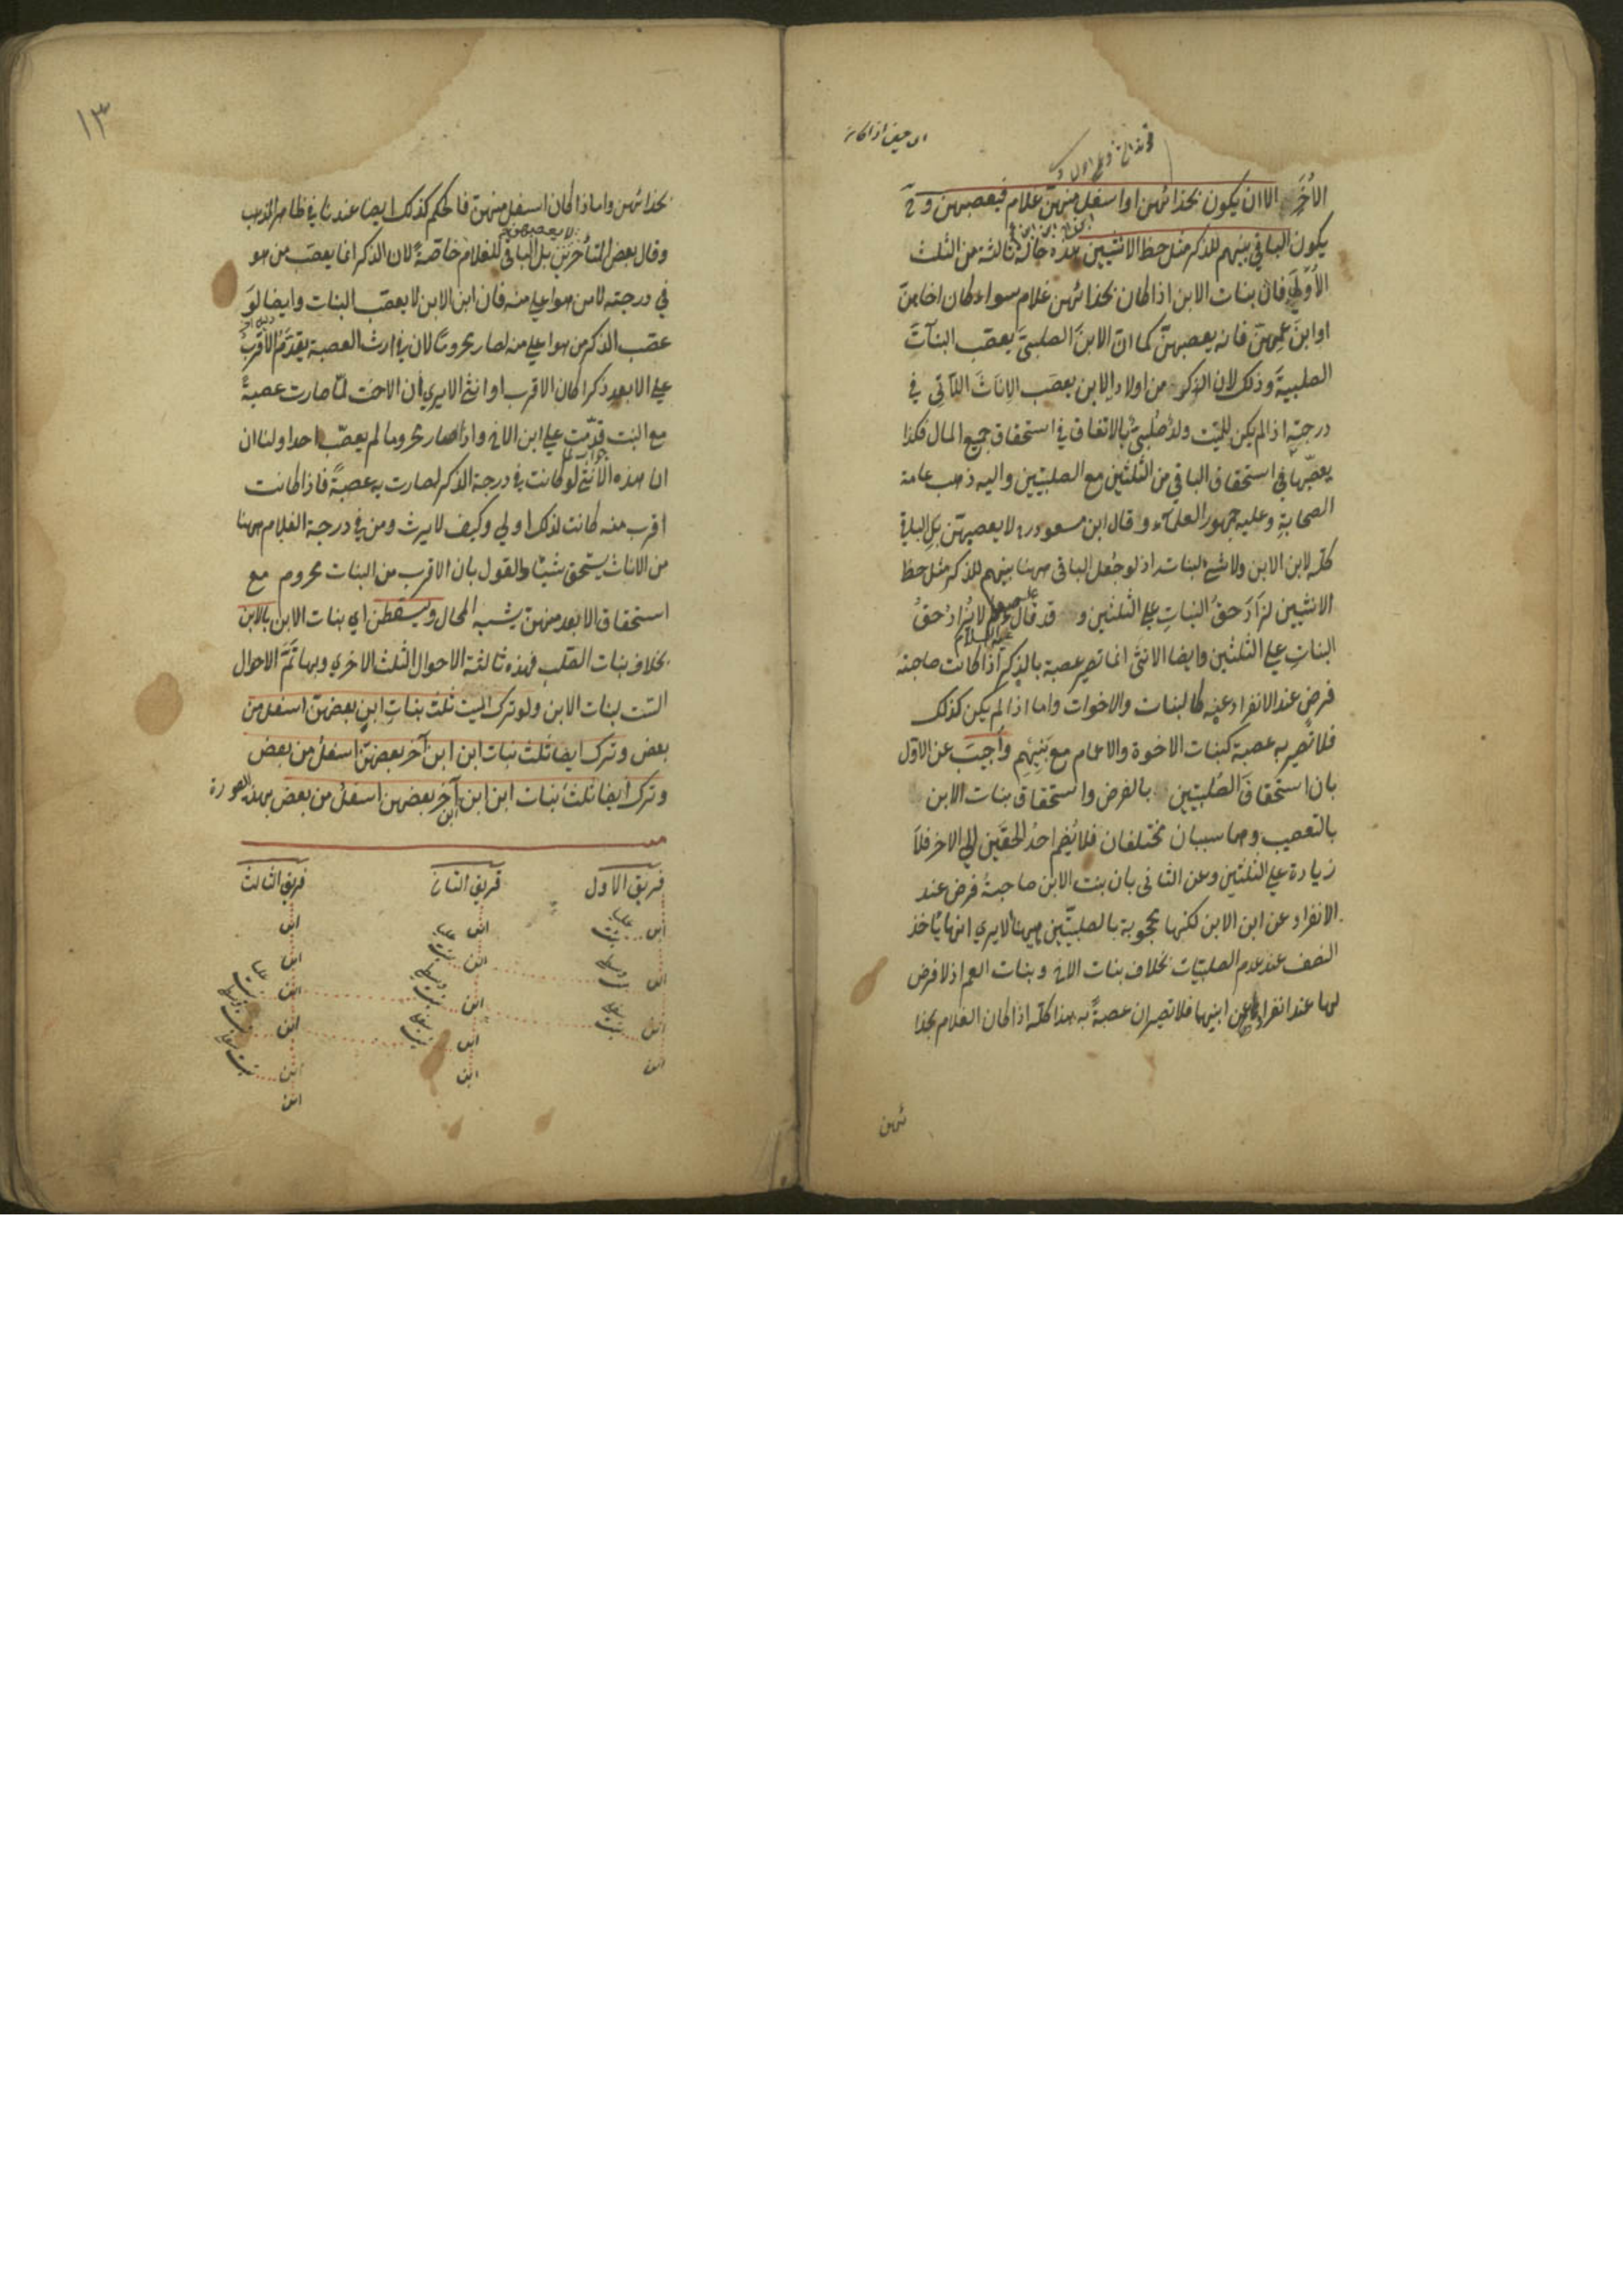 الأخر الا ان يكون بحذائهن او اسفل منهن غلام فيعصبهن وح
يكون الباقي بينهم للذكر مثل حظ الانثيين هذه حالة ثالثة من الثلث
الأولي فان بنات الابن اذا كان بحذائهن غلام سواء كان اخاهن
او ابن عمهن فانه يعصبهن كما ان الابن الصلبي يعصب البنات
الصلبية وذلك لان الذكر من اولاد الابن يعصب الاناث اللاتي في
درجته اذا لم يكن للميت ولد صلبي بالاتفاق في استحقاق جميع المال فكذا
يعصبها في استحقاق الباقي من الثلثين مع الصلبيتين واليه ذهب عامة
الصحابة وعليه جمهور العلماء وقال ابن مسعود رض لا يعصبهن بل الباقي
كله لابن الابن ولا شئ لبنات اذ لو جعل الباقي ههنا بينهم للذكر مثل حظ
الانثيين لزاد حق البنات علي الثلثين و قد قال عليه السلام لا يزاد حق
البنات علي الثلثين وايضا الانثى انما تصير عصبة بالذكر اذا كانت صاحبة
فرض عند الانفراد عنه كالبنات والاخوات واما اذا لم يكن كذلك
فلا تصير به عصبة كبنات الاخوة والاعمام مع بنيهم وأجيب عن الاول
بان استحقاق الصلبيتين بالفرض واستحقاق بنات الابن
بالتعصيب وهما سببان مختلفان فلا يضم احد الحقين الي الاخر فلا
زيادة علي الثلثين وعن الثاني بان بنت الابن صاحبة فرض عند
الانفراد عن ابن الابن لكنها محجوبة بالصلبيتين ههنا ألا يري انها يأخذ
النصف عند عدم الصلبيات بخلاف بنات الاخ وبنات العم اذ لا فرض
لهما عند انفرادهما عن ابنيهما فلا تصيران عصبة به هذا كله اذا كان الغلام بحذا
ئهن
١٣
بحذائهن واما اذا كان اسفل منهن فالحكم كذلك ايضا عندنا في ظاهر المذهب
وقال بعض المتأخرين لا يعصبهن بل الباقي للغلام خاصة لان الذكر انما يعصب من هو
في درجته لا من هو اعلي منه فان ابن الابن لا يعصب البنات وايضا لو
عصب الذكر من هو اعلي منه لصار محروما لان في ارث العصبة يقدم الاقرب
علي الابعد ذكرا كان الاقرب او انثي الا يري أن الاخت لما صارت عصبة
مع البنت قدمت علي ابن الاخ واذا صار محروما لم يعصب احدا ولنا ان
ان هذه الأنثي لو كانت في درجة الذكر لصارت به عصبة فاذا كانت
اقرب منه كانت لذلك اولي وكيف لا يرث ومن في درجة الغلام ههنا
من الاناث يستحق شيئا والقول بان الاقرب من البنات محروم مع
استحقاق الابعد منهن يشبه المحال ويسقطن اي بنات الابن بالابن
بخلاف بنات الصلب فهذه ثالثة الاحوال الثلث الاخري وبها تم الاحوال
الست لبنات الابن ولو ترك الميت ثلث بنات ابن بعضهن اسفل من
بعض وترك ايضا ثلث بنات ابن ابن آخر بعضهن اسفل من بعض
وترك ايضا ثلث بنات ابن ابن ابن آخر بعضهن اسفل من بعض بهذه الصورة
فريق الاول فريق الثاني فريق الثالث
ابن بنت عليا ابن ابن
ابن بنت وسطي ابن بنت عليا ابن
ابن بنت سفلي ابن بنت وسطي ابن بنت عليا
ابن ابن بنت سفلي ابن بنت وسطي
ابن ابن بنت سفلي
ابن